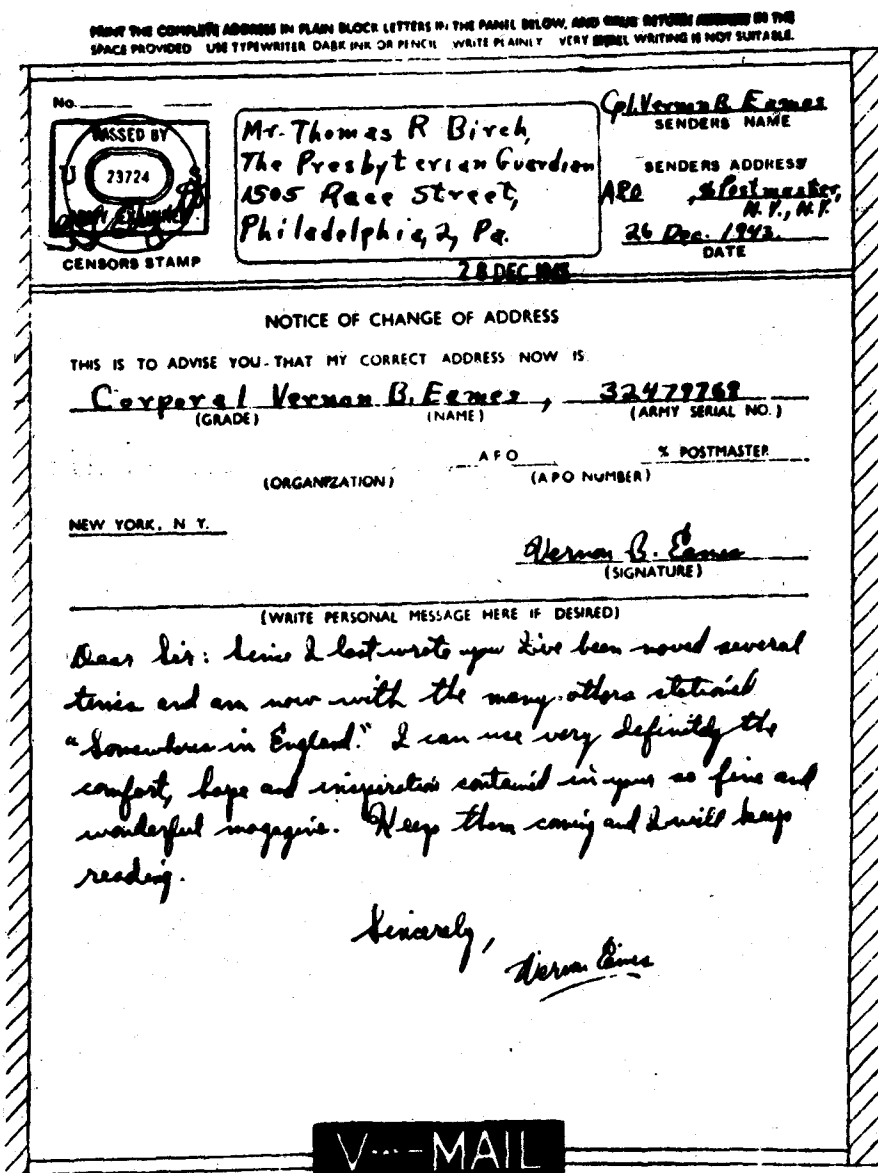 PRINT THE COMPLETE ADDRESS IN PLAIN BLOCK LETTERS IN THE PANEL BELOW, AND YOUR RETURN ADDRESS IN THE
SPACE PROVIDED USE TYPEWRITER DARK INK OR PENCIL WRITE PLAINLY VERY SMALL WRITING IS NOT SUITABLE.
No.
PASSED BY
U S
23724
CENSORS STAMP
Mr. Thomas R Birch,
The Presbyterian Guardian
1505 Race Street,
Philadelphia, 2, Pa.
Cpl. Vernon B. Eames
SENDERS NAME
SENDERS ADDRESS
APO , % Postmaster,
N.Y., N.Y.
26 Dec. 1943.
DATE
28 DEC
NOTICE OF CHANGE OF ADDRESS
THIS IS TO ADVISE YOU THAT MY CORRECT ADDRESS NOW IS
Corporal Vernon B. Eames, 32479768
(GRADE) (NAME) (ARMY SERIAL NO.)
A P O % POSTMASTER
(ORGANIZATION) (A P O NUMBER)
NEW YORK, N Y.
Vernon B. Eames
(SIGNATURE)
(WRITE PERSONAL MESSAGE HERE IF DESIRED)
Dear Sir: Since I last wrote you I've been moved several
times and am now with the many others stationed
"Somewhere in England." I can use very definitely the
comfort, hope and inspiration contained in your so fine and
wonderful magazine. Keep them coming and I will keep
reading.
Sincerely,
Vernon Eames
V···—MAIL